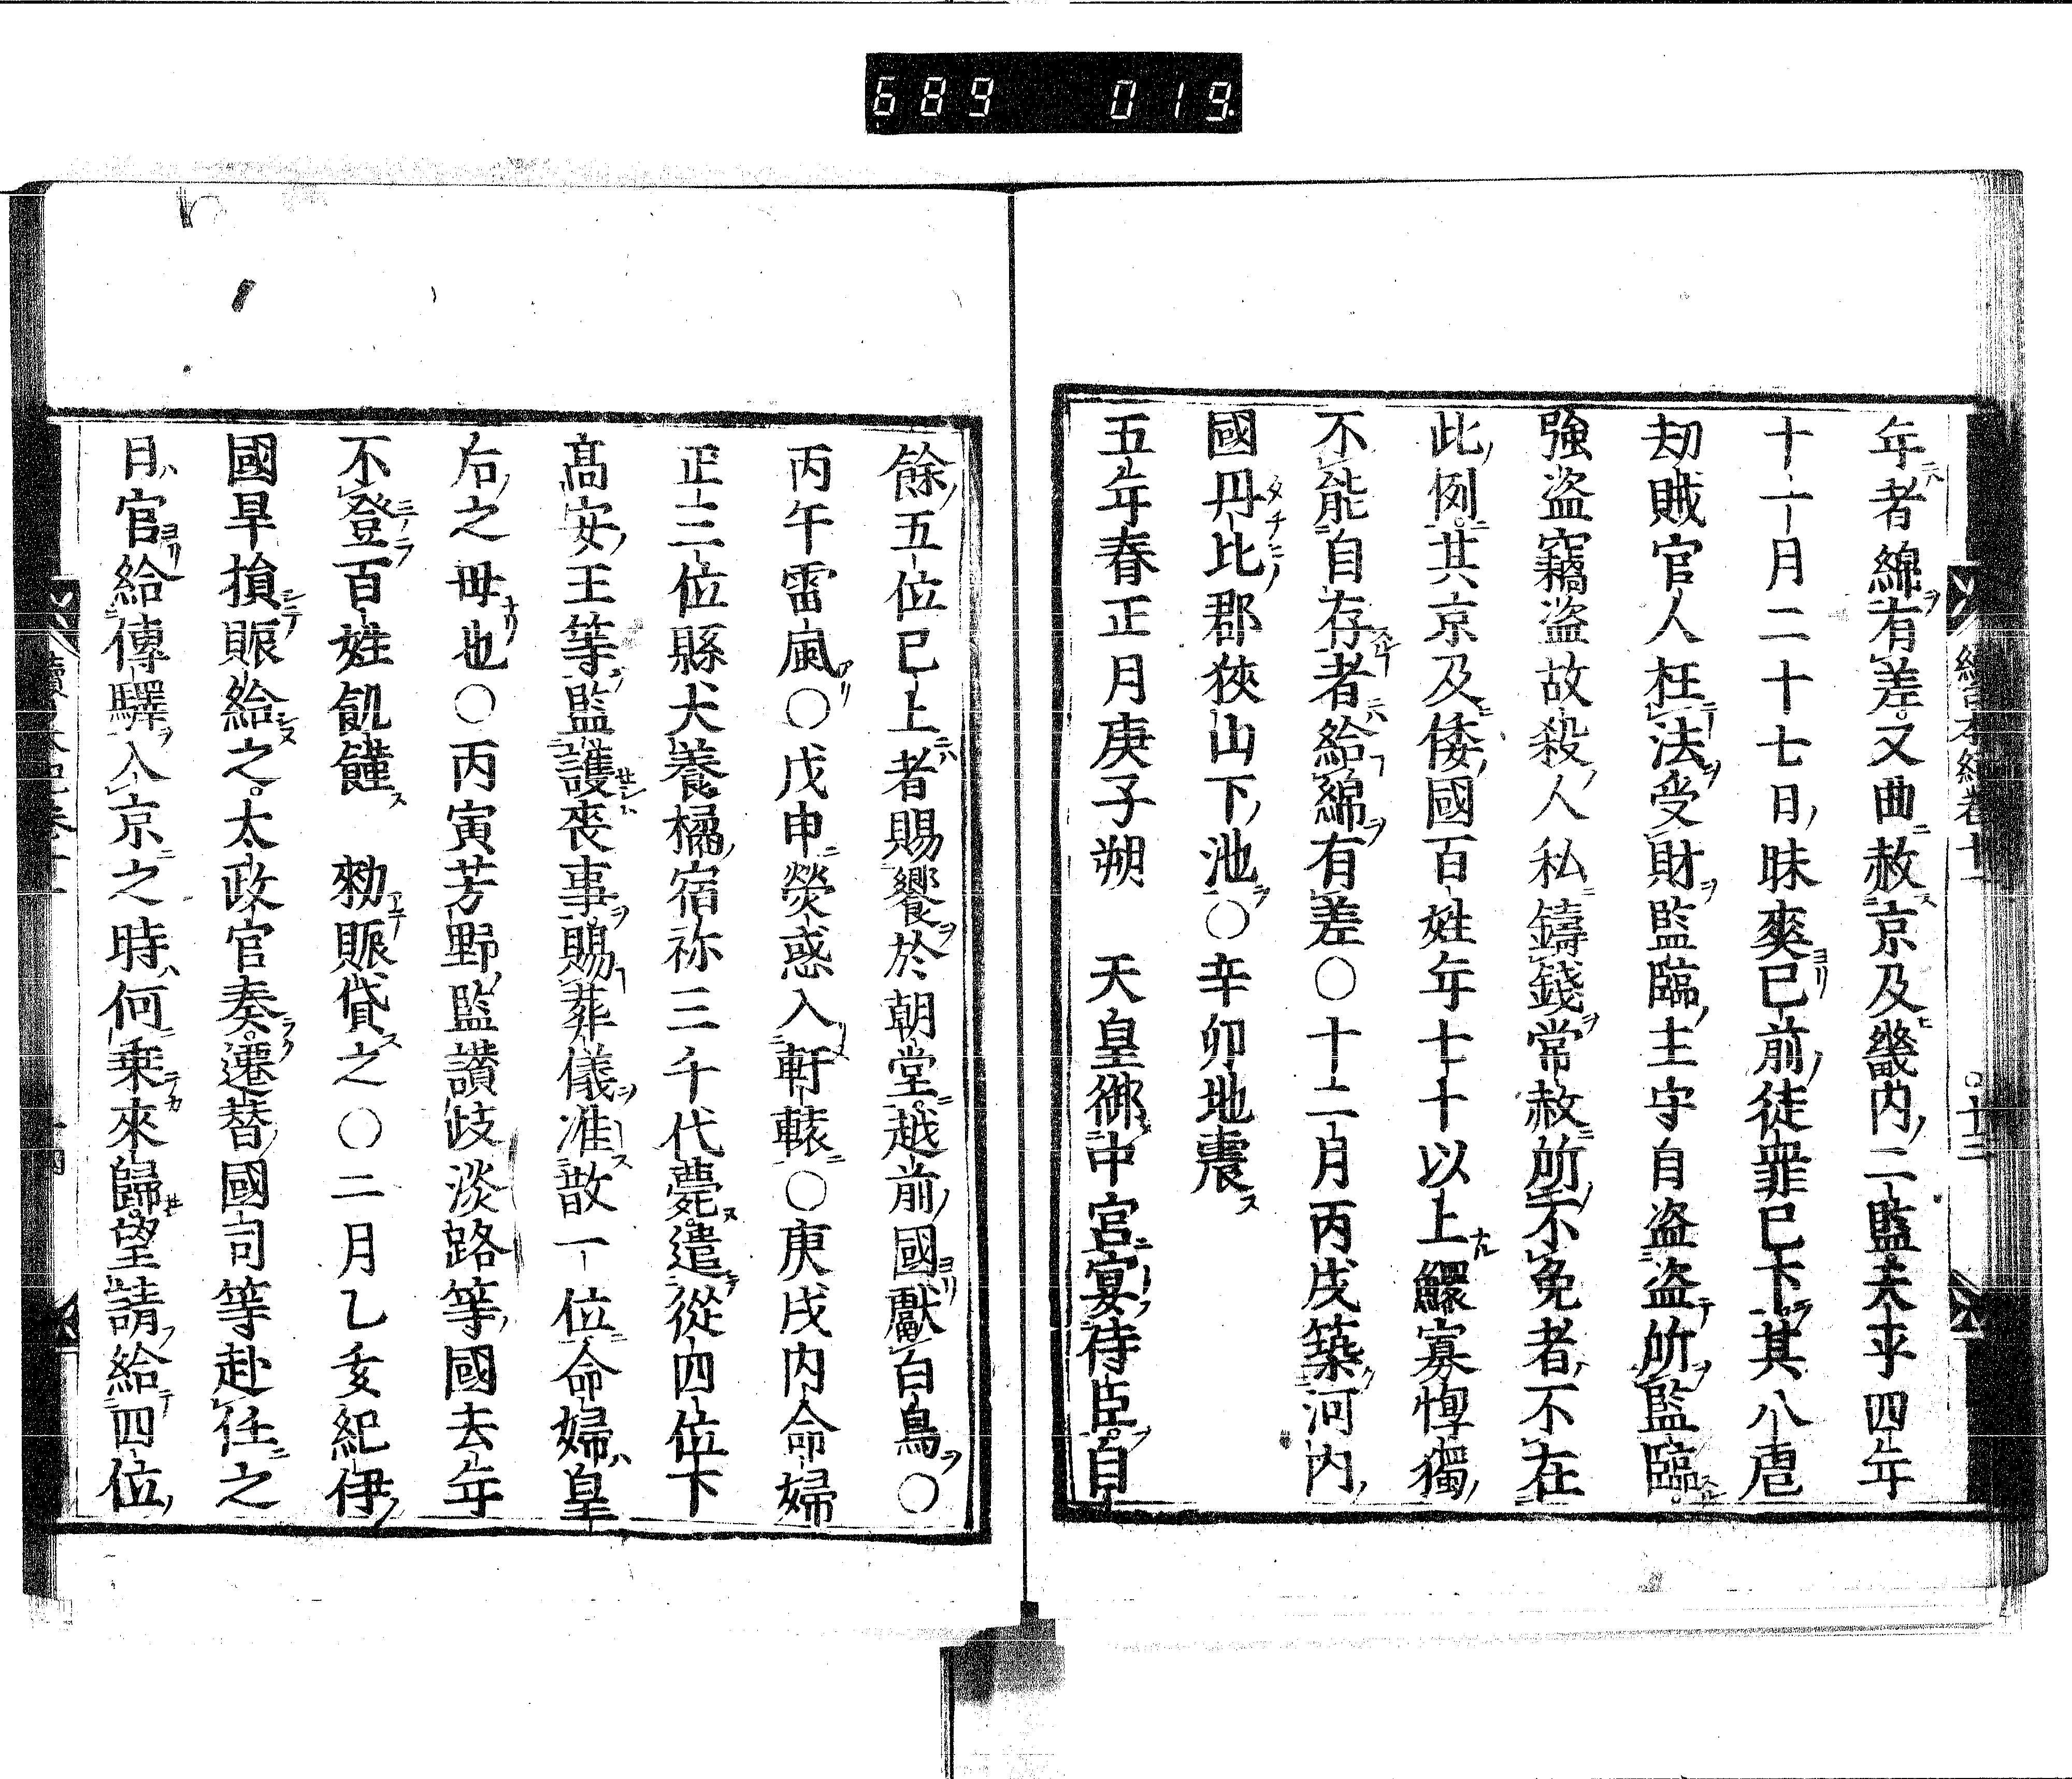 689 019
年者綿有差又曲赦京及畿内二監天平四年
十一月二十七日昧爽已前徒罪已下其八虐
劫賊官人枉法受財監臨主守自盗盗所監臨
強盗竊盗故殺人私鑄錢常赦所不免者不在
此例其京及倭國百姓年七十以上鰥寡惸獨
不能自存者給綿有差〇十二月丙戌築河内
國丹比郡狹山下池〇辛卯地震
五年春正月庚子朔 天皇御中宮宴侍臣自
餘五位已上者賜饗於朝堂越前國獻白鳥〇
丙午雷風〇戊申熒惑入軒轅〇庚戌内命婦
正三位縣犬養橘宿祢三千代薨遣從四位下
高安王等監護喪事賜葬儀准散一位命婦皇
后之母也〇丙寅芳野監讃岐淡路等國去年
不登百姓飢饉 勑賑貸之〇二月乙亥紀伊
國旱損賑給之太政官奏遷替國司等赴任之
日官給傳驛入京之時何乗來歸望請給四位